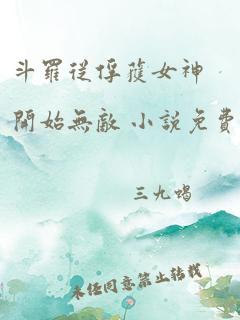 斗羅從俘獲女神
開始無敵 小說免費
三九喝
未經同意禁止轉載